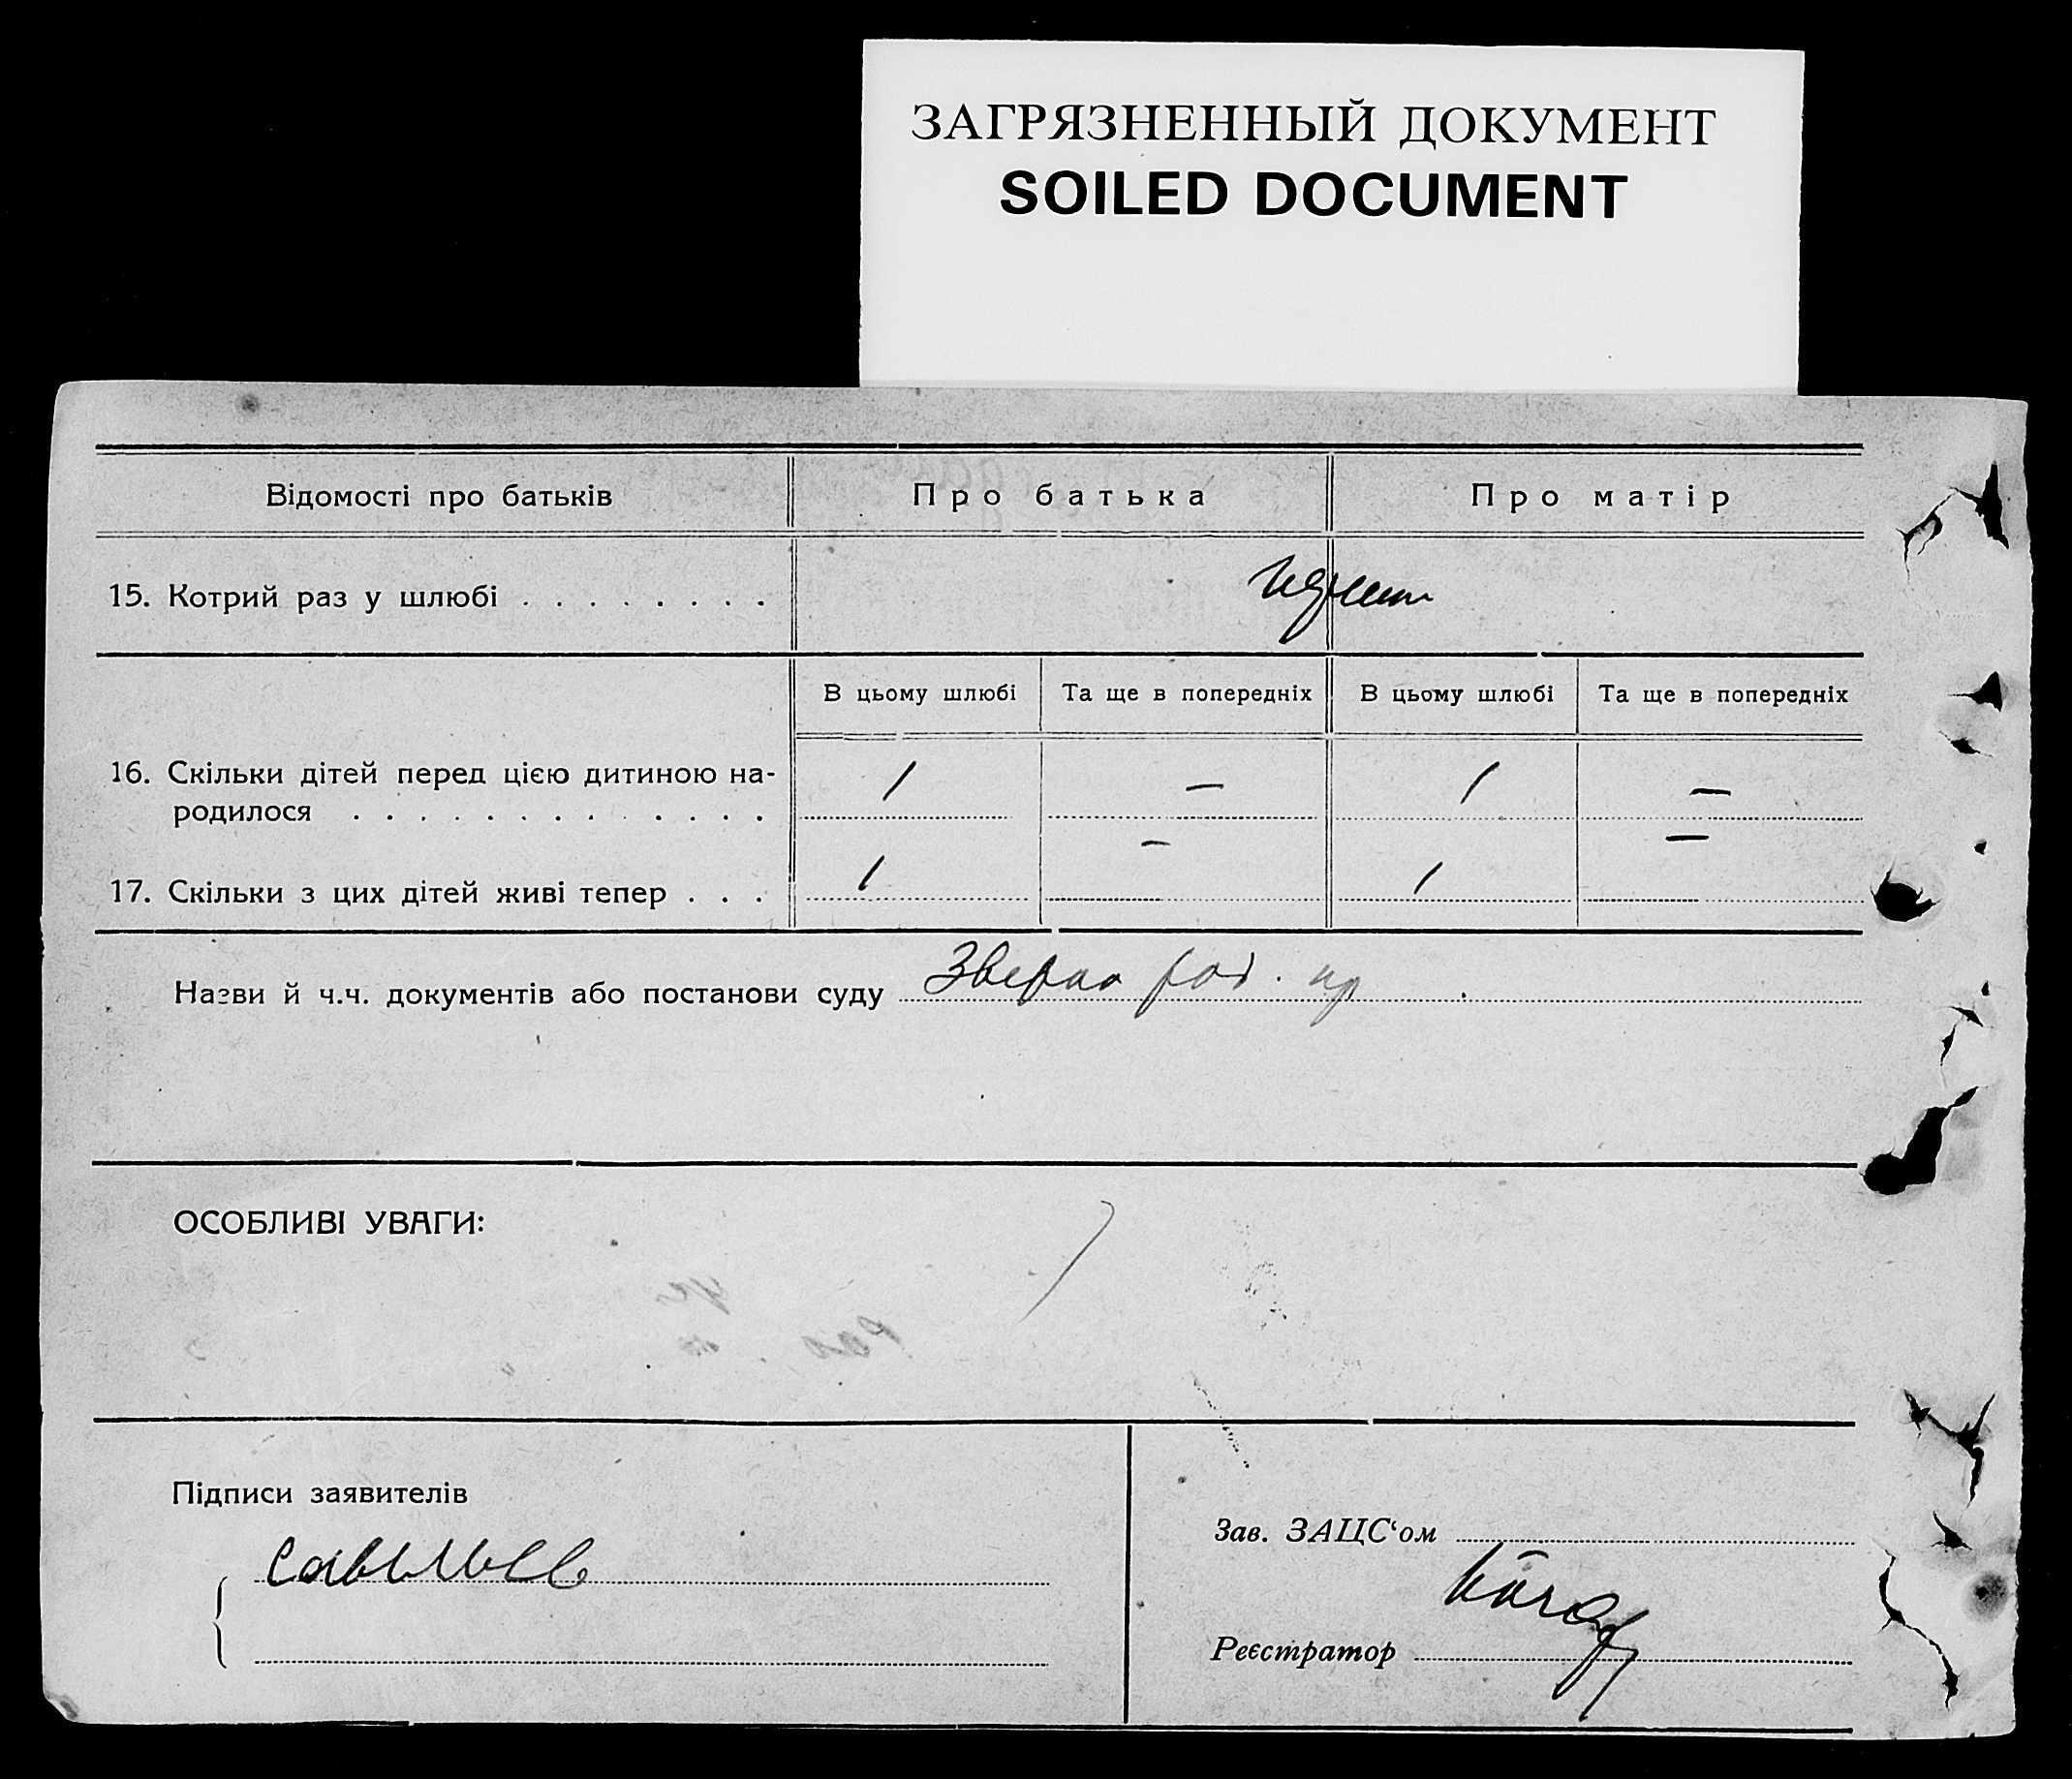 ЗАГРЯЗНЕННЫЙ ДОКУМЕНТ
SOILED DOCUMENT
Відомості про батьків Про батька Про матір
15. Котрий раз у шлюбі . . . . . . . .
В цьому шлюбі Та ще в попередніх В цьому шлюбі Та ще в попередніх
16. Скільки дітей перед цією дитиною на-
родилося . . . . . . . . . . . . . 1 — 1 —
17. Скільки з цих дітей живі тепер . . . 1 — 1 —
Назви й ч.ч. документів або постанови суду
ОСОБЛИВІ УВАГИ:
Підписи заявителів
Зав. ЗАЦС‘ом
Реєстратор